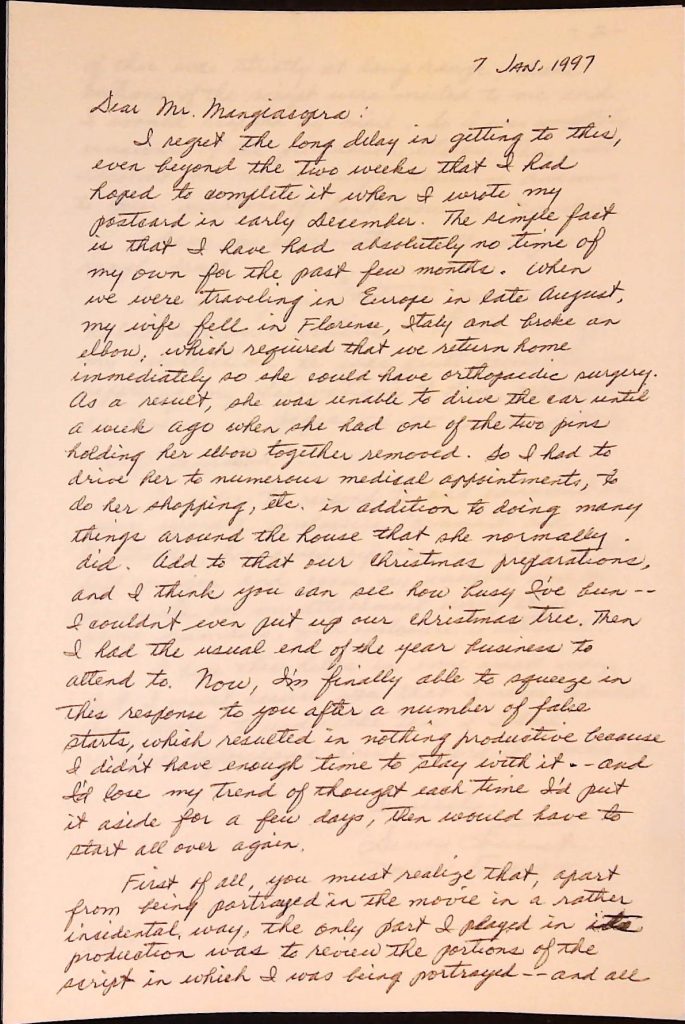 7 JAN. 1997
Dear Mr. Mangiasopra:
I regret the long delay in getting to this,
even beyond the two weeks that I had
hoped to complete it when I wrote my
postcard in early December. The simple fact
is that I have had absolutely no time of
my own for the past few months. When
we were traveling in Europe in late August,
my wife fell in Florence, Italy and broke an
elbow, which required that we return home
immediately so she could have orthopaedic surgery.
As a result, she was unable to drive the car until
a week ago when she had one of the two pins
holding her elbow together removed. So I had to
drive her to numerous medical appointments, to
do her shopping, etc. in addition to doing many
things around the house that she normally
did. Add to that our Christmas preparations,
and I think you can see how busy I've been--
I couldn't even put up our Christmas tree. Then
I had the usual end of the year business to
attend to. Now, I'm finally able to squeeze in
this response to you after a number of false
starts, which resulted in nothing productive because
I didn't have enough time to stay with it--and
I'd lose my trend of thought each time I'd put
it aside for a few days, then would have to
start all over again.
First of all, you must realize that, apart
from being portrayed in the movie in a rather
incidental way, the only part I played in its
production was to review the portions of the
script in which I was being portrayed--and all